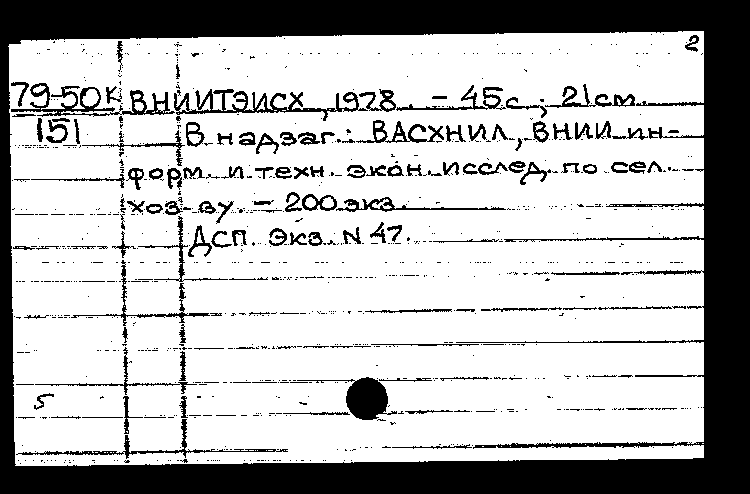 2
79-50К ВНИИТЭИСХ, 1978. - 45с; 21см.
151 В надзаг.: ВАСХНИЛ, ВНИИ ин-
форм. и техн. экон. исслед. по сел.
хоз-ву. - 200 экз.
ДСП. Экз. N 47.
5